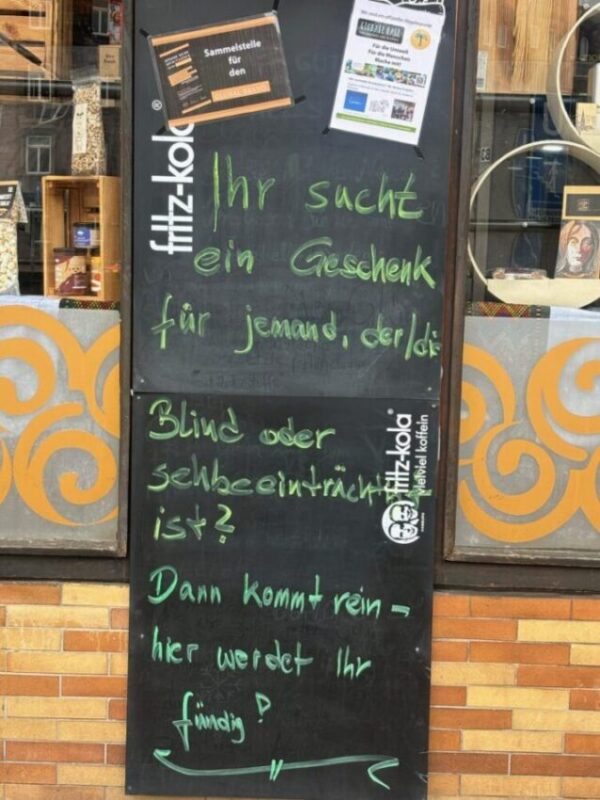 Sammelstelle
für
den
Für die Umwelt
Für die Menschen
Mache mit!
fritz-kola®
Ihr sucht
ein Geschenk
für jemand, der/die
Blind oder
sehbeeinträchtigt
ist?
fritz-kola®
vielviel koffein
Dann kommt rein -
hier werdet Ihr
fündig!